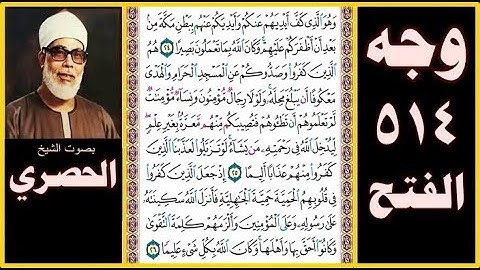 وجه
٥١٤
الفتح
وَهُوَ ٱلَّذِى كَفَّ أَيْدِيَهُمْ عَنكُمْ وَأَيْدِيَكُمْ عَنْهُم بِبَطْنِ مَكَّةَ مِنۢ
بَعْدِ أَنْ أَظْفَرَكُمْ عَلَيْهِمْ ۚ وَكَانَ ٱللَّهُ بِمَا تَعْمَلُونَ بَصِيرًا ٢٤ هُمُ
ٱلَّذِينَ كَفَرُوا۟ وَصَدُّوكُمْ عَنِ ٱلْمَسْجِدِ ٱلْحَرَامِ وَٱلْهَدْىَ
مَعْكُوفًا أَن يَبْلُغَ مَحِلَّهُۥ ۚ وَلَوْلَا رِجَالٌ مُّؤْمِنُونَ وَنِسَآءٌ مُّؤْمِنَٰتٌ
لَّمْ تَعْلَمُوهُمْ أَن تَطَـُٔوهُمْ فَتُصِيبَكُم مِّنْهُم مَّعَرَّةٌۢ بِغَيْرِ عِلْمٍ ۖ
لِّيُدْخِلَ ٱللَّهُ فِى رَحْمَتِهِۦ مَن يَشَآءُ ۚ لَوْ تَزَيَّلُوا۟ لَعَذَّبْنَا ٱلَّذِينَ
كَفَرُوا۟ مِنْهُمْ عَذَابًا أَلِيمًا ٢٥ إِذْ جَعَلَ ٱلَّذِينَ كَفَرُوا۟
فِى قُلُوبِهِمُ ٱلْحَمِيَّةَ حَمِيَّةَ ٱلْجَٰهِلِيَّةِ فَأَنزَلَ ٱللَّهُ سَكِينَتَهُۥ
عَلَىٰ رَسُولِهِۦ وَعَلَى ٱلْمُؤْمِنِينَ وَأَلْزَمَهُمْ كَلِمَةَ ٱلتَّقْوَىٰ
وَكَانُوٓا۟ أَحَقَّ بِهَا وَأَهْلَهَا ۚ وَكَانَ ٱللَّهُ بِكُلِّ شَىْءٍ عَلِيمًا ٢٦
بصوت الشيخ
الحصري